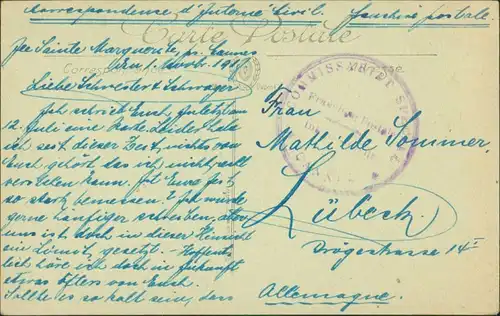 Correspondence d'Interné Civil. Franchise postale.
Carte Postale
Ile Sainte Marguerite, pr. Cannes
Correspondance
den 1. Novb. 191
Liebe Schwester & Schwager
Ich schrieb Euch zuletzt am
12. Juli eine Karte. Leider habe
ich seit dieser Zeit nichts von
Euch gehört das ich nicht recht
verstehen kann. Ist Eure
so stark bemessen? Ich würde
gerne häufiger schreiben, aber
uns ist doch in dieser Hinsicht
ein Limit gesetzt. Hoffent-
lich höre ich doch in Zukunft
etwas öfters von Euch.
Sollte es so kalt sein, dass
COMMISSARIAT SPECIAL
Franchise Postale
CANNES
Frau
Mathilde Sommer.
Lübeck.
Drögestrasse 14 II
Allemagne.